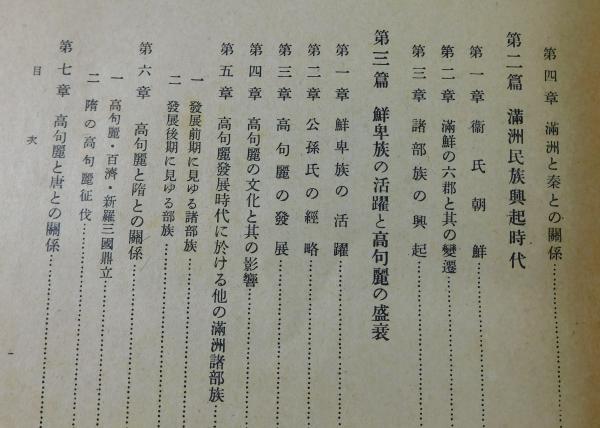 第四章 滿洲と秦との關係
第二篇 滿洲民族興起時代
第一章 衞氏朝鮮
第二章 滿鮮の六郡と其の變遷
第三章 諸部族の興起
第三篇 鮮卑族の活躍と高句麗の盛衰
第一章 鮮卑族の活躍
第二章 公孫氏の經略
第三章 高句麗の發展
第四章 高句麗の文化と其の影響
第五章 高句麗發展時代に於ける他の滿洲諸部族
一 發展前期に見ゆる諸部族
二 發展後期に見ゆる部族
第六章 高句麗と隋との關係
一 高句麗・百濟・新羅三國鼎立
二 隋の高句麗征伐
第七章 高句麗と唐との關係
目次